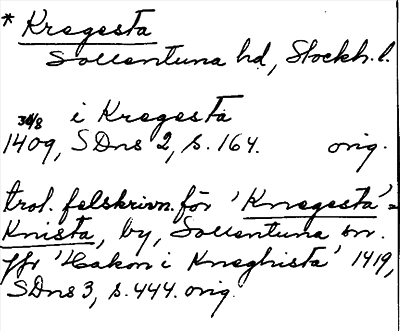 * Kregesta
Sollentuna hd, Stockh. l.
i Kregesta
30/8
1409, SDns 2, s. 164. orig.
trol. felskrivn. för 'Knegesta' =
Knista, by, Sollentuna sn.
Jfr 'Hakon i Kneghista' 1419,
SDns 3, s. 444. orig.